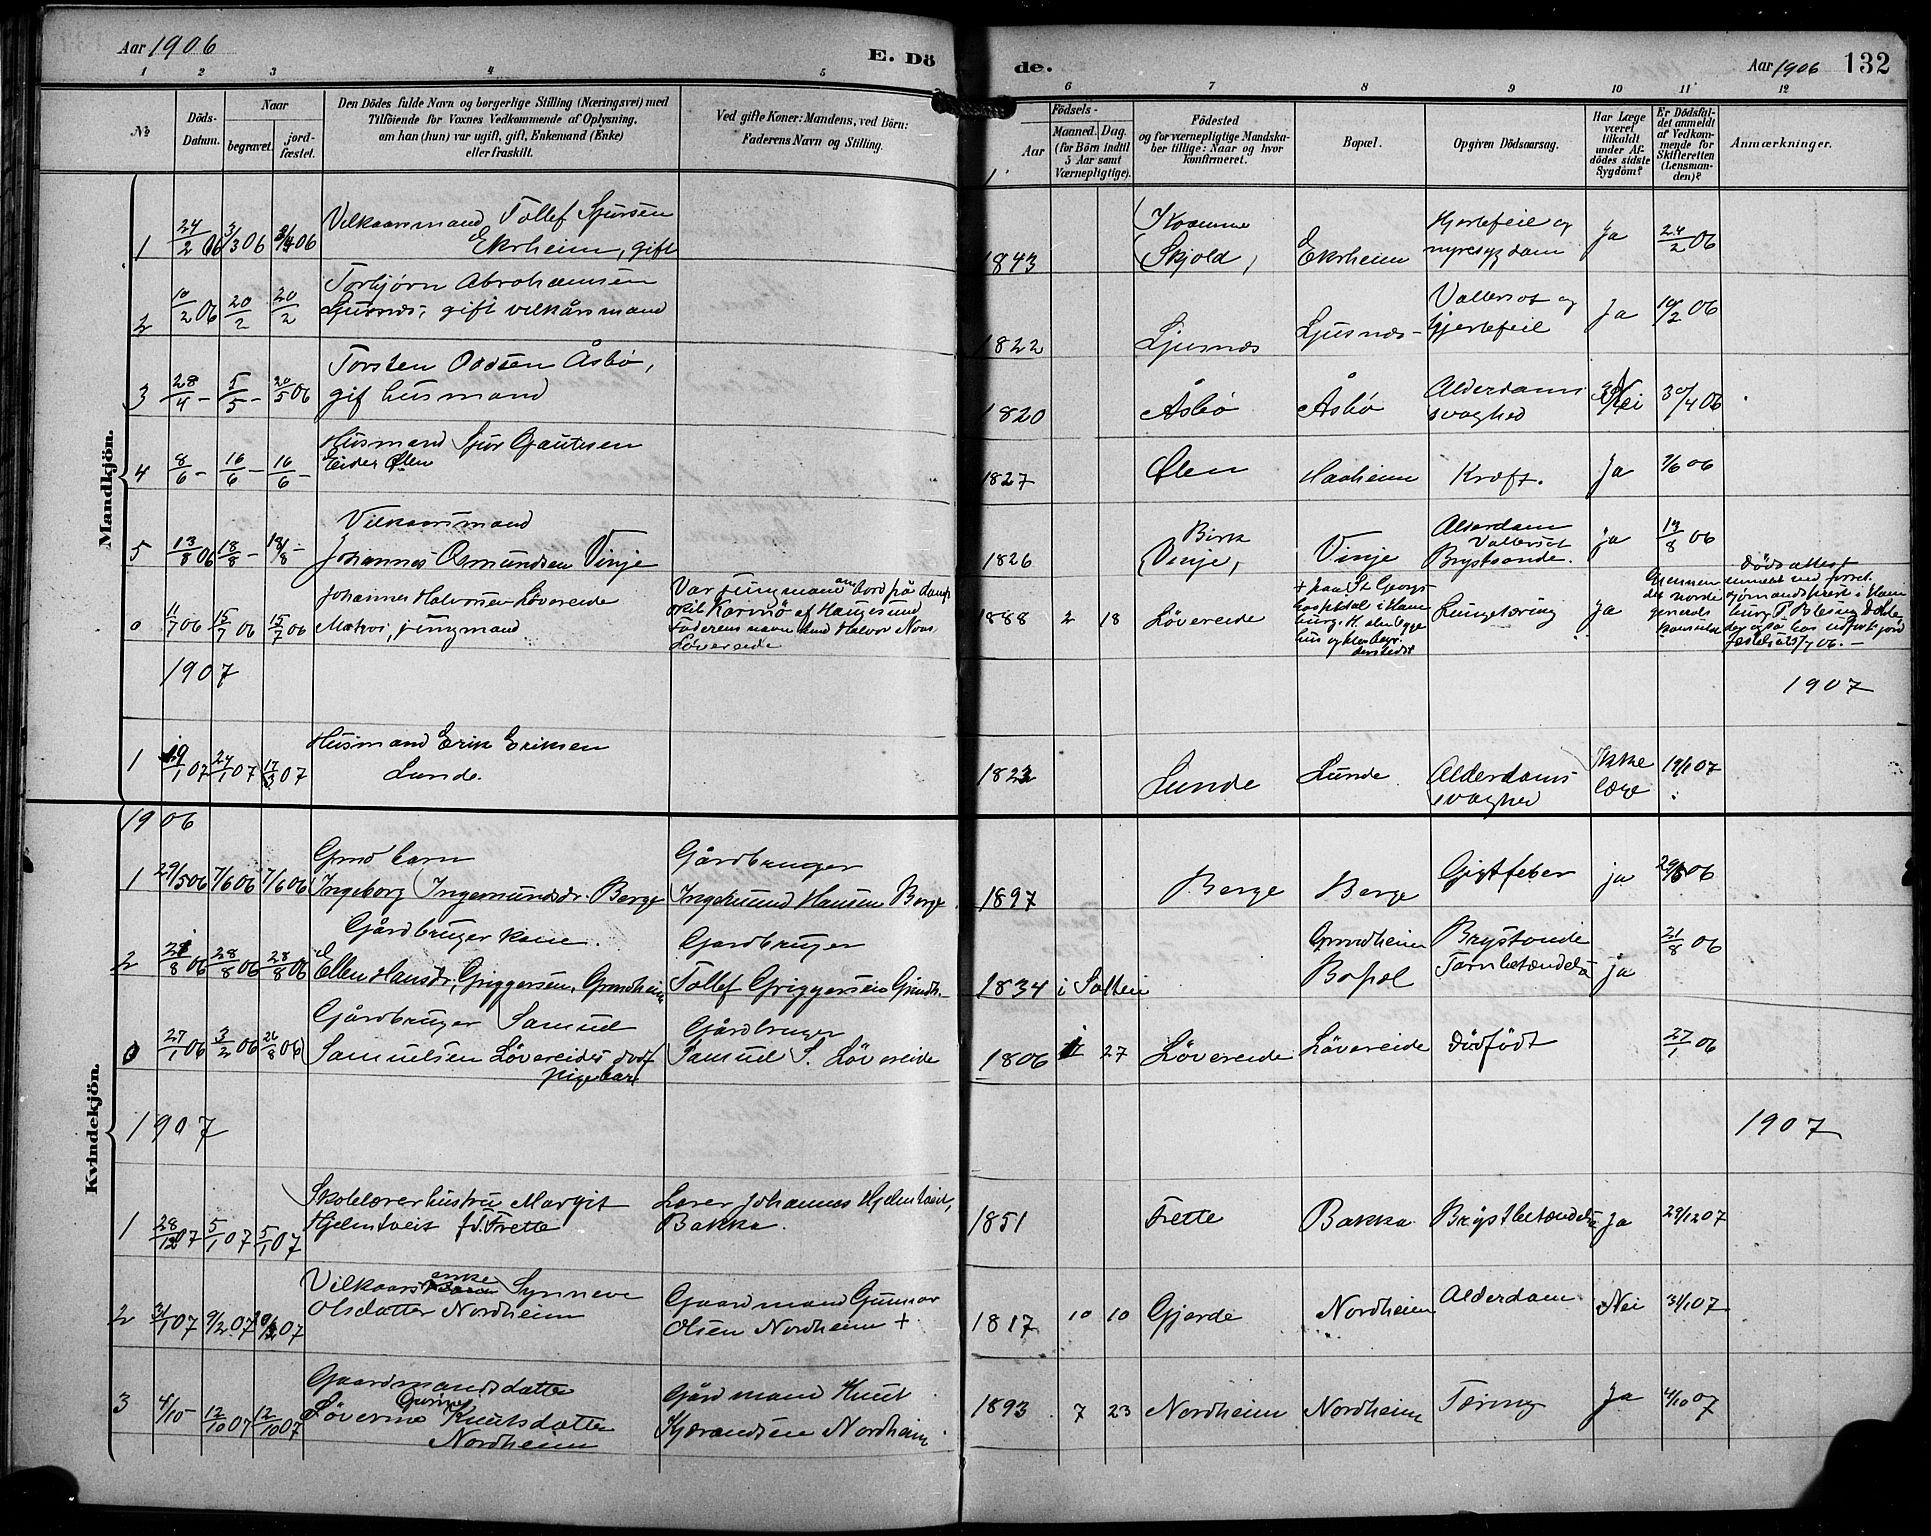 Aar 1906
E. Dö
de.
Aar 1906
132
1 2 3 4 5
6 7 8 9 10 11 12
№
Döds-Datum.
Naar
begravet.
jord-fæstet.
Den Dödes fulde Navn og borgerlige Stilling (Næringsvei) med
Tilföiende for Voxnes Vedkommende af Oplysning,
om han (hun) var ugift, gift, Enkemand (Enke)
eller fraskilt.
Ved gifte Koner: Mandens, ved Börn:
Faderens Navn og Stilling.
Födsels-
Aar
Maaned. Dag.
(for Börn indtil
5 Aar samt
Værnepligtige).
Födested
og for værnepligtige Mandska-
ber tillige: Naar og hvor
konfirmeret.
Bopæl.
Opgiven Dödsaarsag.
Har Læge
været
tilkaldt
under Af-
dödes sidste
Sygdom?
Er Dödsfal-
det anmeldt
af Vedkom-
mende for
Skifteretten
(Lensman-
den)?
Anmærkninger.
Mandkjön.
1 24/2 06 3/3 06 06
Vilkaarsmand Tollef Sjursen
Ekrheim, gift
1843
Skjold,
Ekrheim
Hjertefeil og
nyresygdom
Ja
24/2 06
2 10/2 06 20/2 20/2
Torbjørn Abrahamsen
Ljusnæs, gift vilkårsmand
1822
Ljusnæs
Ljusnæs-
Vattersot og
hjertefeil
Ja
10/2 06
3 28/4 - 5/5 - 20/5 06
Torsten Oddsen Åsbø,
gif husmand
1820
Åsbø
Åsbø
Alderdoms
svaghed
Nei
30/4 06
4 8/6 - 16/6 - 16/6 -
Husmand Sjur Gautsen
Eider Ølen
1827
Ølen
Haaheim
Kræft.
Ja
06
5 13/8 06 18/8 - 18/8 -
Vilkaarsmand
Johannes Osmundsen Vinje
1826
Birk
Vinje,
Vinje
Alderdom
Vattersot
Brystonde.
ja
13/8 06
0 11/7 06 15/7 06 15/7 06
Johannes Halvorsen Løvereide
Matros, jungmand
Var jungmand om bord på damp
skib Karmsö af Haugesund
Faderens navn
Løvereide
1888 2 18
Løvereide
+ paa St Georgs
hospital i Ham
burg.
Lungetæring
ja
Gjennem
det norske
generals
konsulat
Dødsattest
06.-
1907
1907
1 19/1 07 24/1 07 17/3 07
Husmand Erik Eriksen
Lunde.
1823
Lunde
Lunde
Alderdoms
svaghed
Ikke
læge
19/1 07
Kvindekjön.
1906
1 29/5 06 7/6 06 7/6 06
Gmd barn
Ingeborg Ingemundsdr Berge
Gårdbruger
Ingemund Hansen Berge
1897
Berge
Berge
Gigtfeber
ja
29/5 06
2 21/8 06 28/8 06 28/8 06
Gårdbruger kone.
Ellen Hansdr, Griggersen, Grindheim
Gardbruger
Tollef Griggersen Grindh.
1834 i Sotten
Grindheim
Bopæl
Brystonde
Tarmbetændelse
ja
21/8 06
0 27/1 06 3/2 06 26/8 06
Gårdbruger Samuel
Samuelsen Løvereides dødf
pigebarn
Gårdbruger
Samuel S. Løvereide
1806 1 27
Løvereide
Løvereide
dödfödt
27/1 06
1907
1907
1 28/12 07 5/1 07 5/1 07
Skolelærerhustru Margit
Hjelmtveit fd. Frette
Lærer Johannes Hjelmtveit,
Bakka.
1851
Frette
Bakka
Brystbetændelse
Ja
29/12 07
2 31/1 07 9/2 07 07
Vilkaarsenke Synneve
Olsdatter Nordheim
Gaardmand Gunnar
Olsen Nordheim +
1817 10 10
Gjerde
Nordheim
Alderdom
Nei
31/1 07
3 4/10 - 12/10 07 12/10 07
Gaardmandsdatter
Løverine Knutsdatter
Nordheim
Gårdmand Knut
Kjærandsen Nordheim
1893 7 23
Nordheim
Nordheim
Tæring
Ja
4/10 07